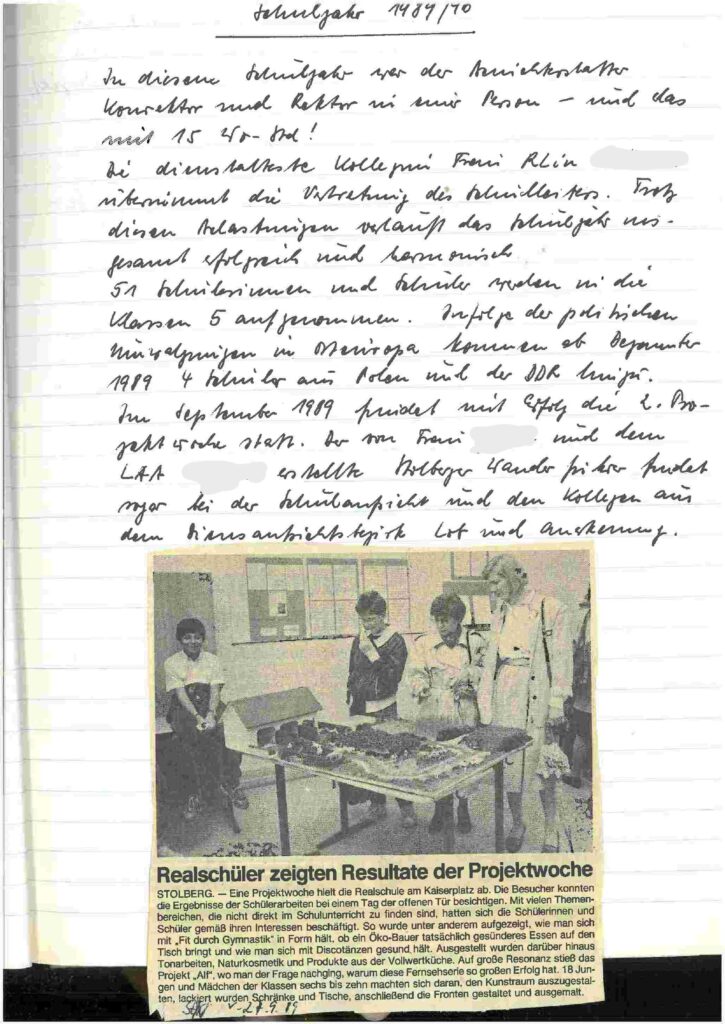 Schuljahr 1989/90
In diesem Schuljahr war der Berichterstatter
Konrektor und Rektor in einer Person – und das
mit 15 Wo-Std!
Die dienstälteste Kollegin Frau RLin
übernimmt die Vertretung des Schulleiters. Trotz
diesen Belastungen verläuft das Schuljahr ins-
gesamt erfolgreich und harmonisch
51 Schülerinnen und Schüler werden in die
Klassen 5 aufgenommen. Infolge der politischen
Umwälzungen in Osteuropa kommen ab Dezember
1989 4 Schüler aus Polen und der DDR hinzu.
Im September 1989 findet mit Erfolg die 2. Pro-
jektwoche statt. Der von Frau und dem
LAA erstellte Stolberger Wanderführer findet
sogar bei der Schulaufsicht und den Kollegen aus
dem Dienstaufsichtsbezirk Lob und Anerkennung.
Realschüler zeigten Resultate der Projektwoche
STOLBERG. — Eine Projektwoche hielt die Realschule am Kaiserplatz ab. Die Besucher konnten
die Ergebnisse der Schülerarbeiten bei einem Tag der offenen Tür besichtigen. Mit vielen Themen-
bereichen, die nicht direkt im Schulunterricht zu finden sind, hatten sich die Schülerinnen und
Schüler gemäß ihren Interessen beschäftigt. So wurde unter anderem aufgezeigt, wie man sich
mit „Fit durch Gymnastik" in Form hält, ob ein Öko-Bauer tatsächlich gesünderes Essen auf den
Tisch bringt und wie man sich mit Discotänzen gesund hält. Ausgestellt wurden darüber hinaus
Tonarbeiten, Naturkosmetik und Produkte aus der Vollwertküche. Auf große Resonanz stieß das
Projekt „Alf", wo man der Frage nachging, warum diese Fernsehserie so großen Erfolg hat. 18 Jun-
gen und Mädchen der Klassen sechs bis zehn machten sich daran, den Kunstraum auszugestal-
ten, lackiert wurden Schränke und Tische, anschließend die Fronten gestaltet und ausgemalt.
27.9.89